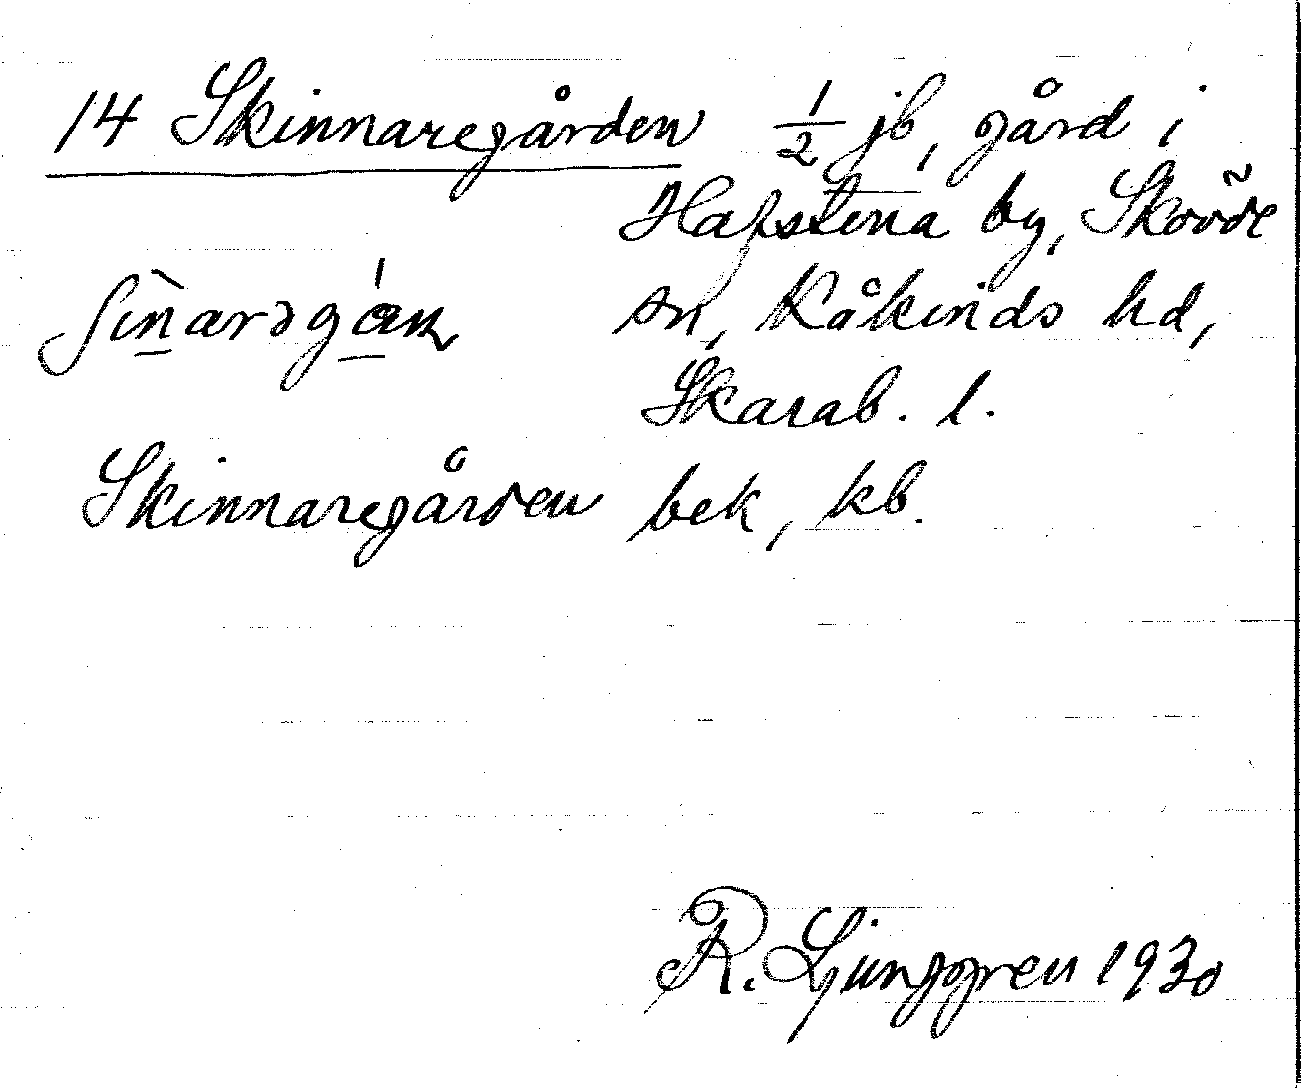 14 Skinnaregården ½ jb, gård i
Hafstena by, Skövde
sn, Kåkinds hd,
Skarab. l.
Skinnaregården bek, kb.
R. Ljunggren 1930